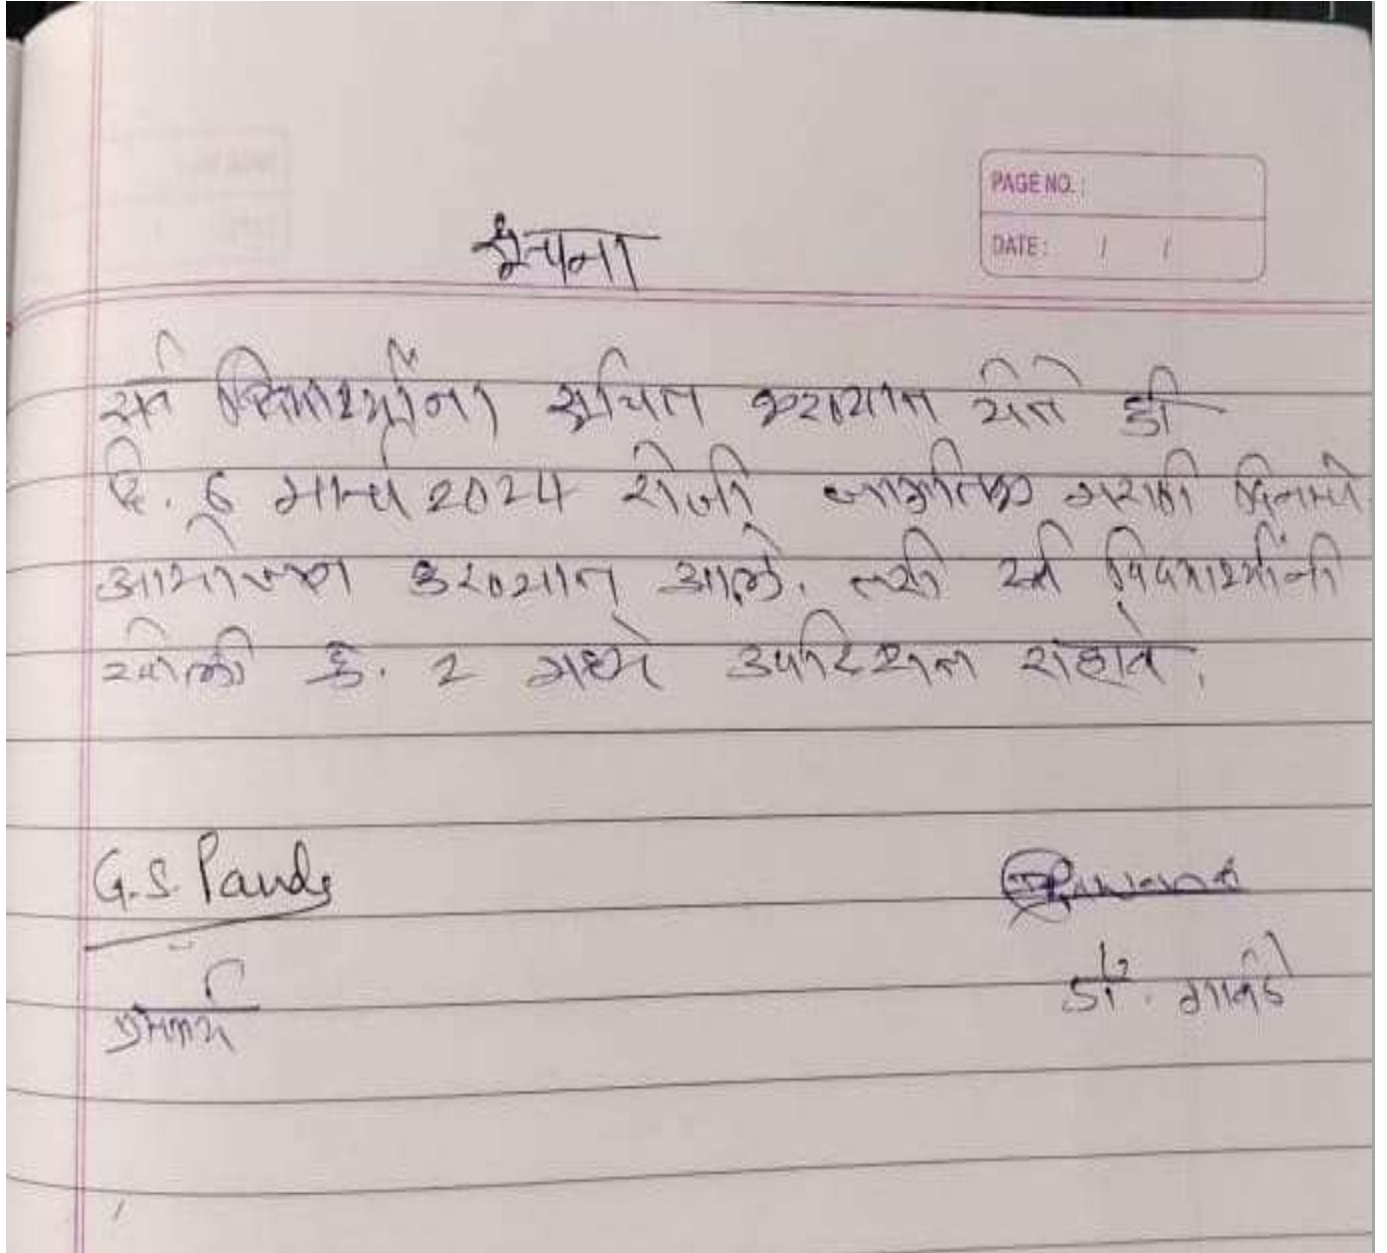 सूचना
PAGE NO. :
DATE: / /
सर्व विद्यार्थ्यांना सूचित करण्यात येते की
दि. ६ मार्च 2024 रोजी जागतिक मराठी दिनाचे
आयोजन करण्यात आले. तरी सर्व विद्यार्थ्यांनी
खोली क्र. 2 मध्ये उपस्थित राहावे.
G.S. Pande
प्राचार्य
डॉ.